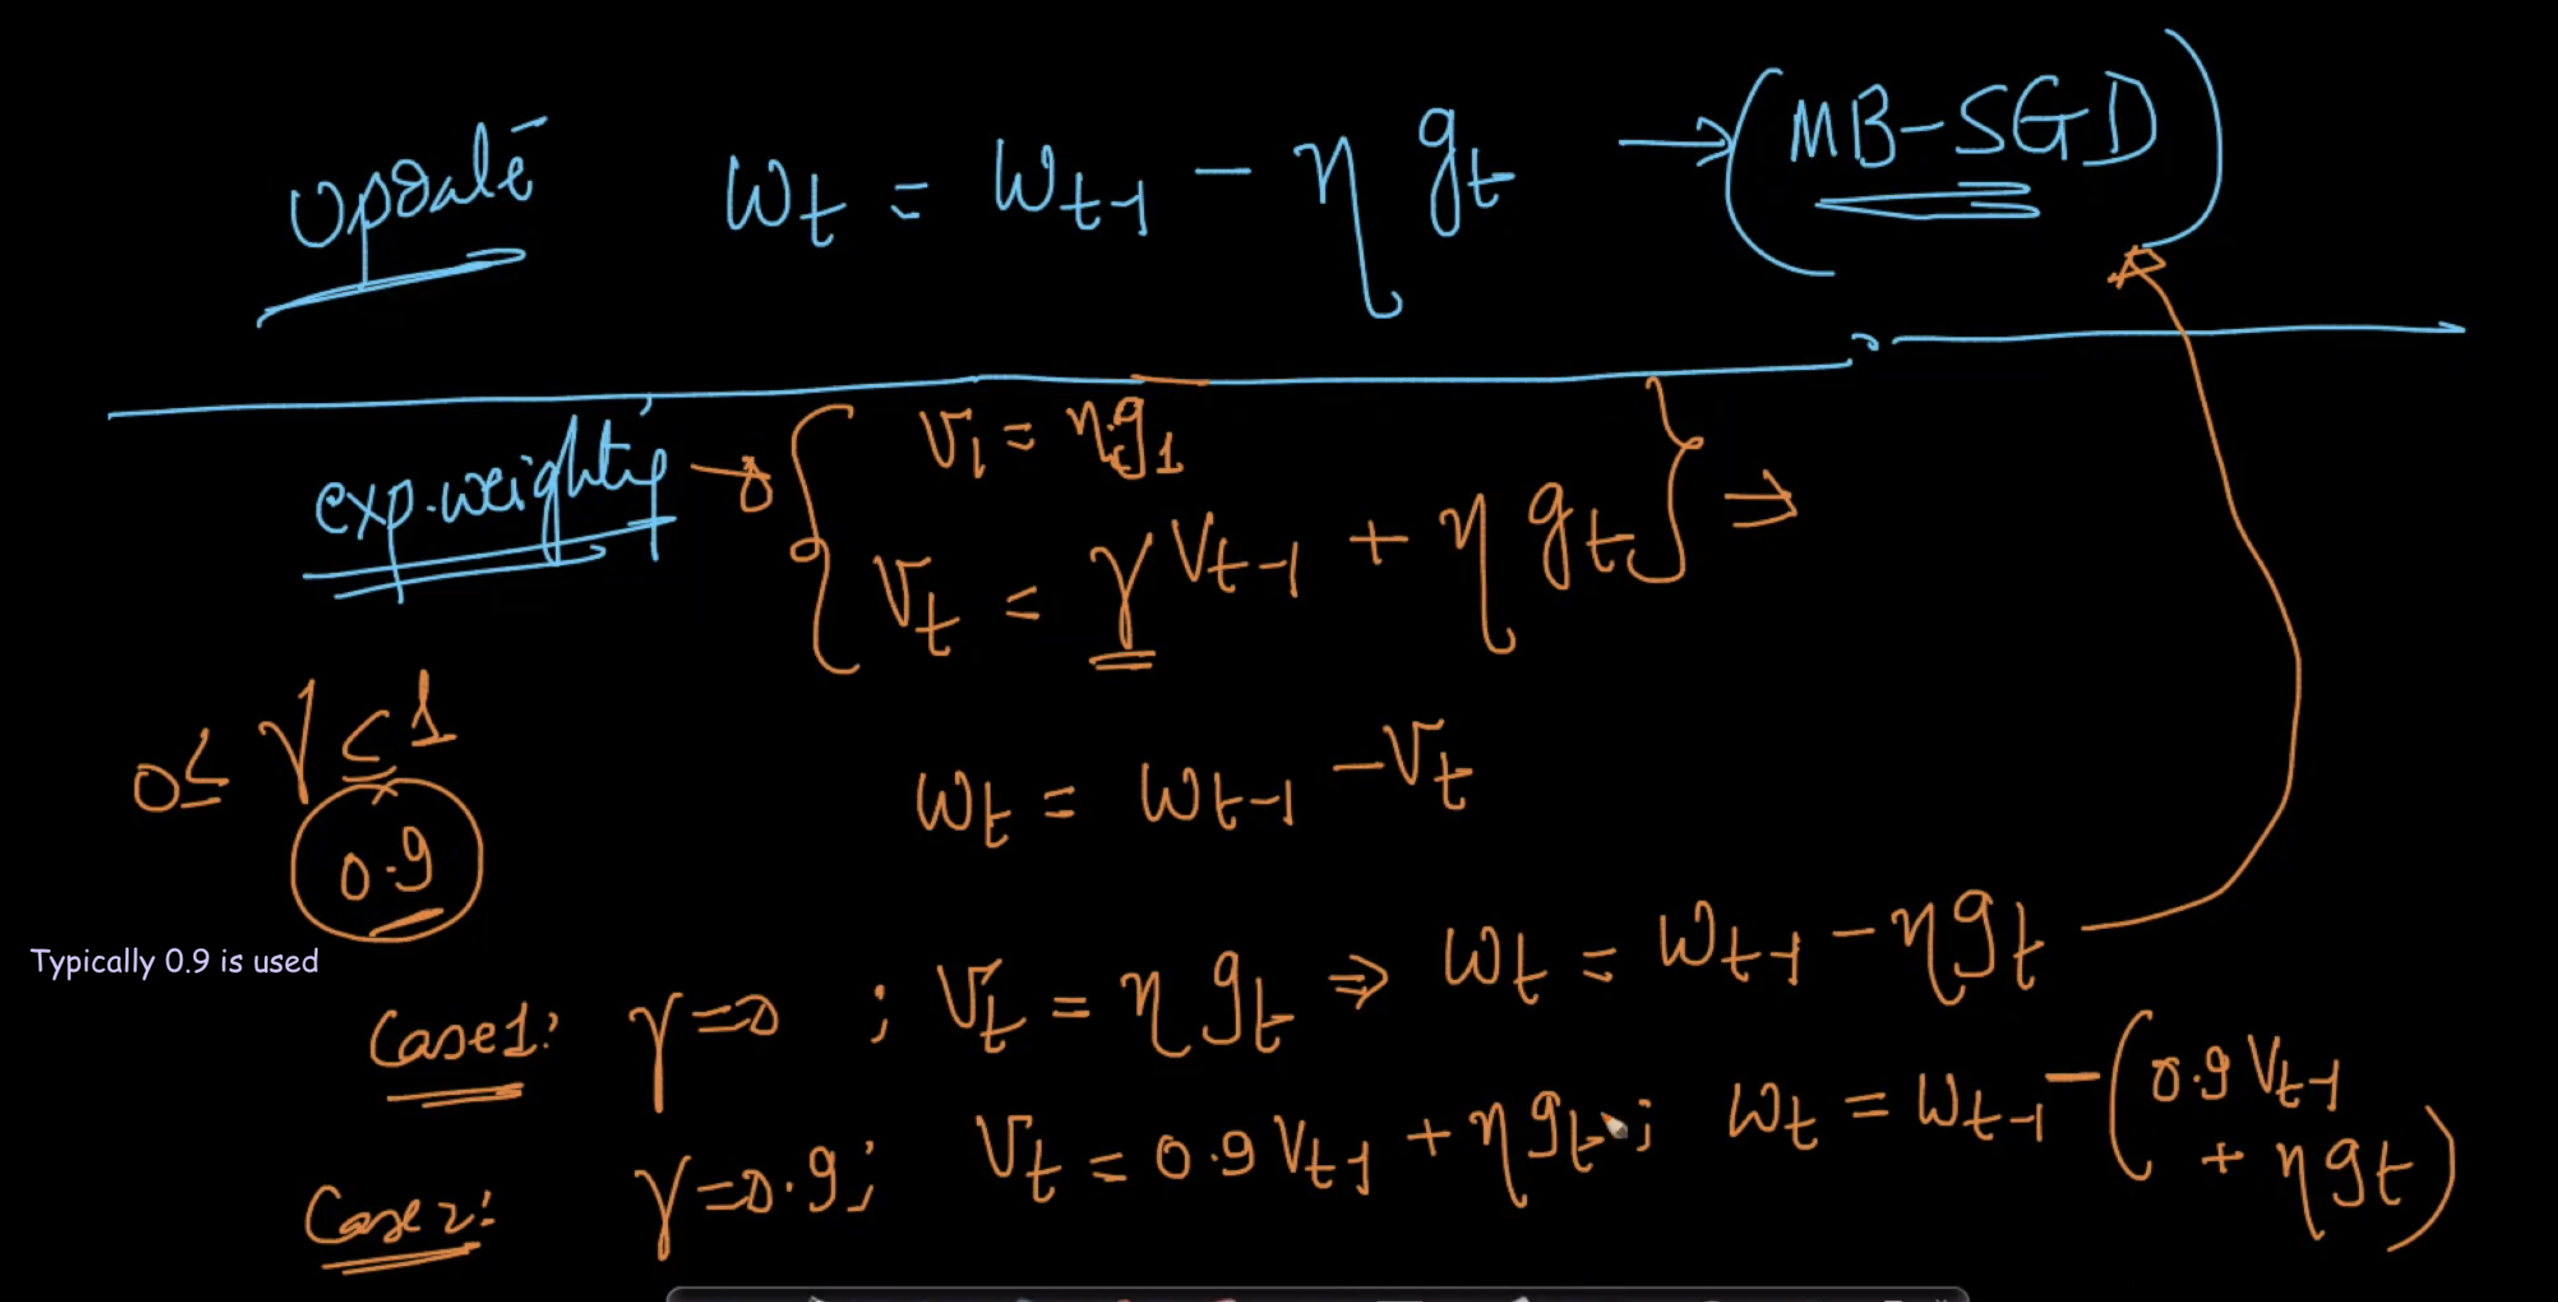 Update wt = wt-1 - η gt → (MB-SGD)
exp. weightig → { v1 = η g1
vt = γ vt-1 + η gt } ⇒
0 ≤ γ ≤ 1
wt = wt-1 - vt
0.9
Typically 0.9 is used
Case1: γ=0 ; vt = η gt ⇒ wt = wt-1 - η gt
Case2: γ=0.9; vt = 0.9 vt-1 + η gt ; wt = wt-1 - (0.9 vt-1
+ η gt)